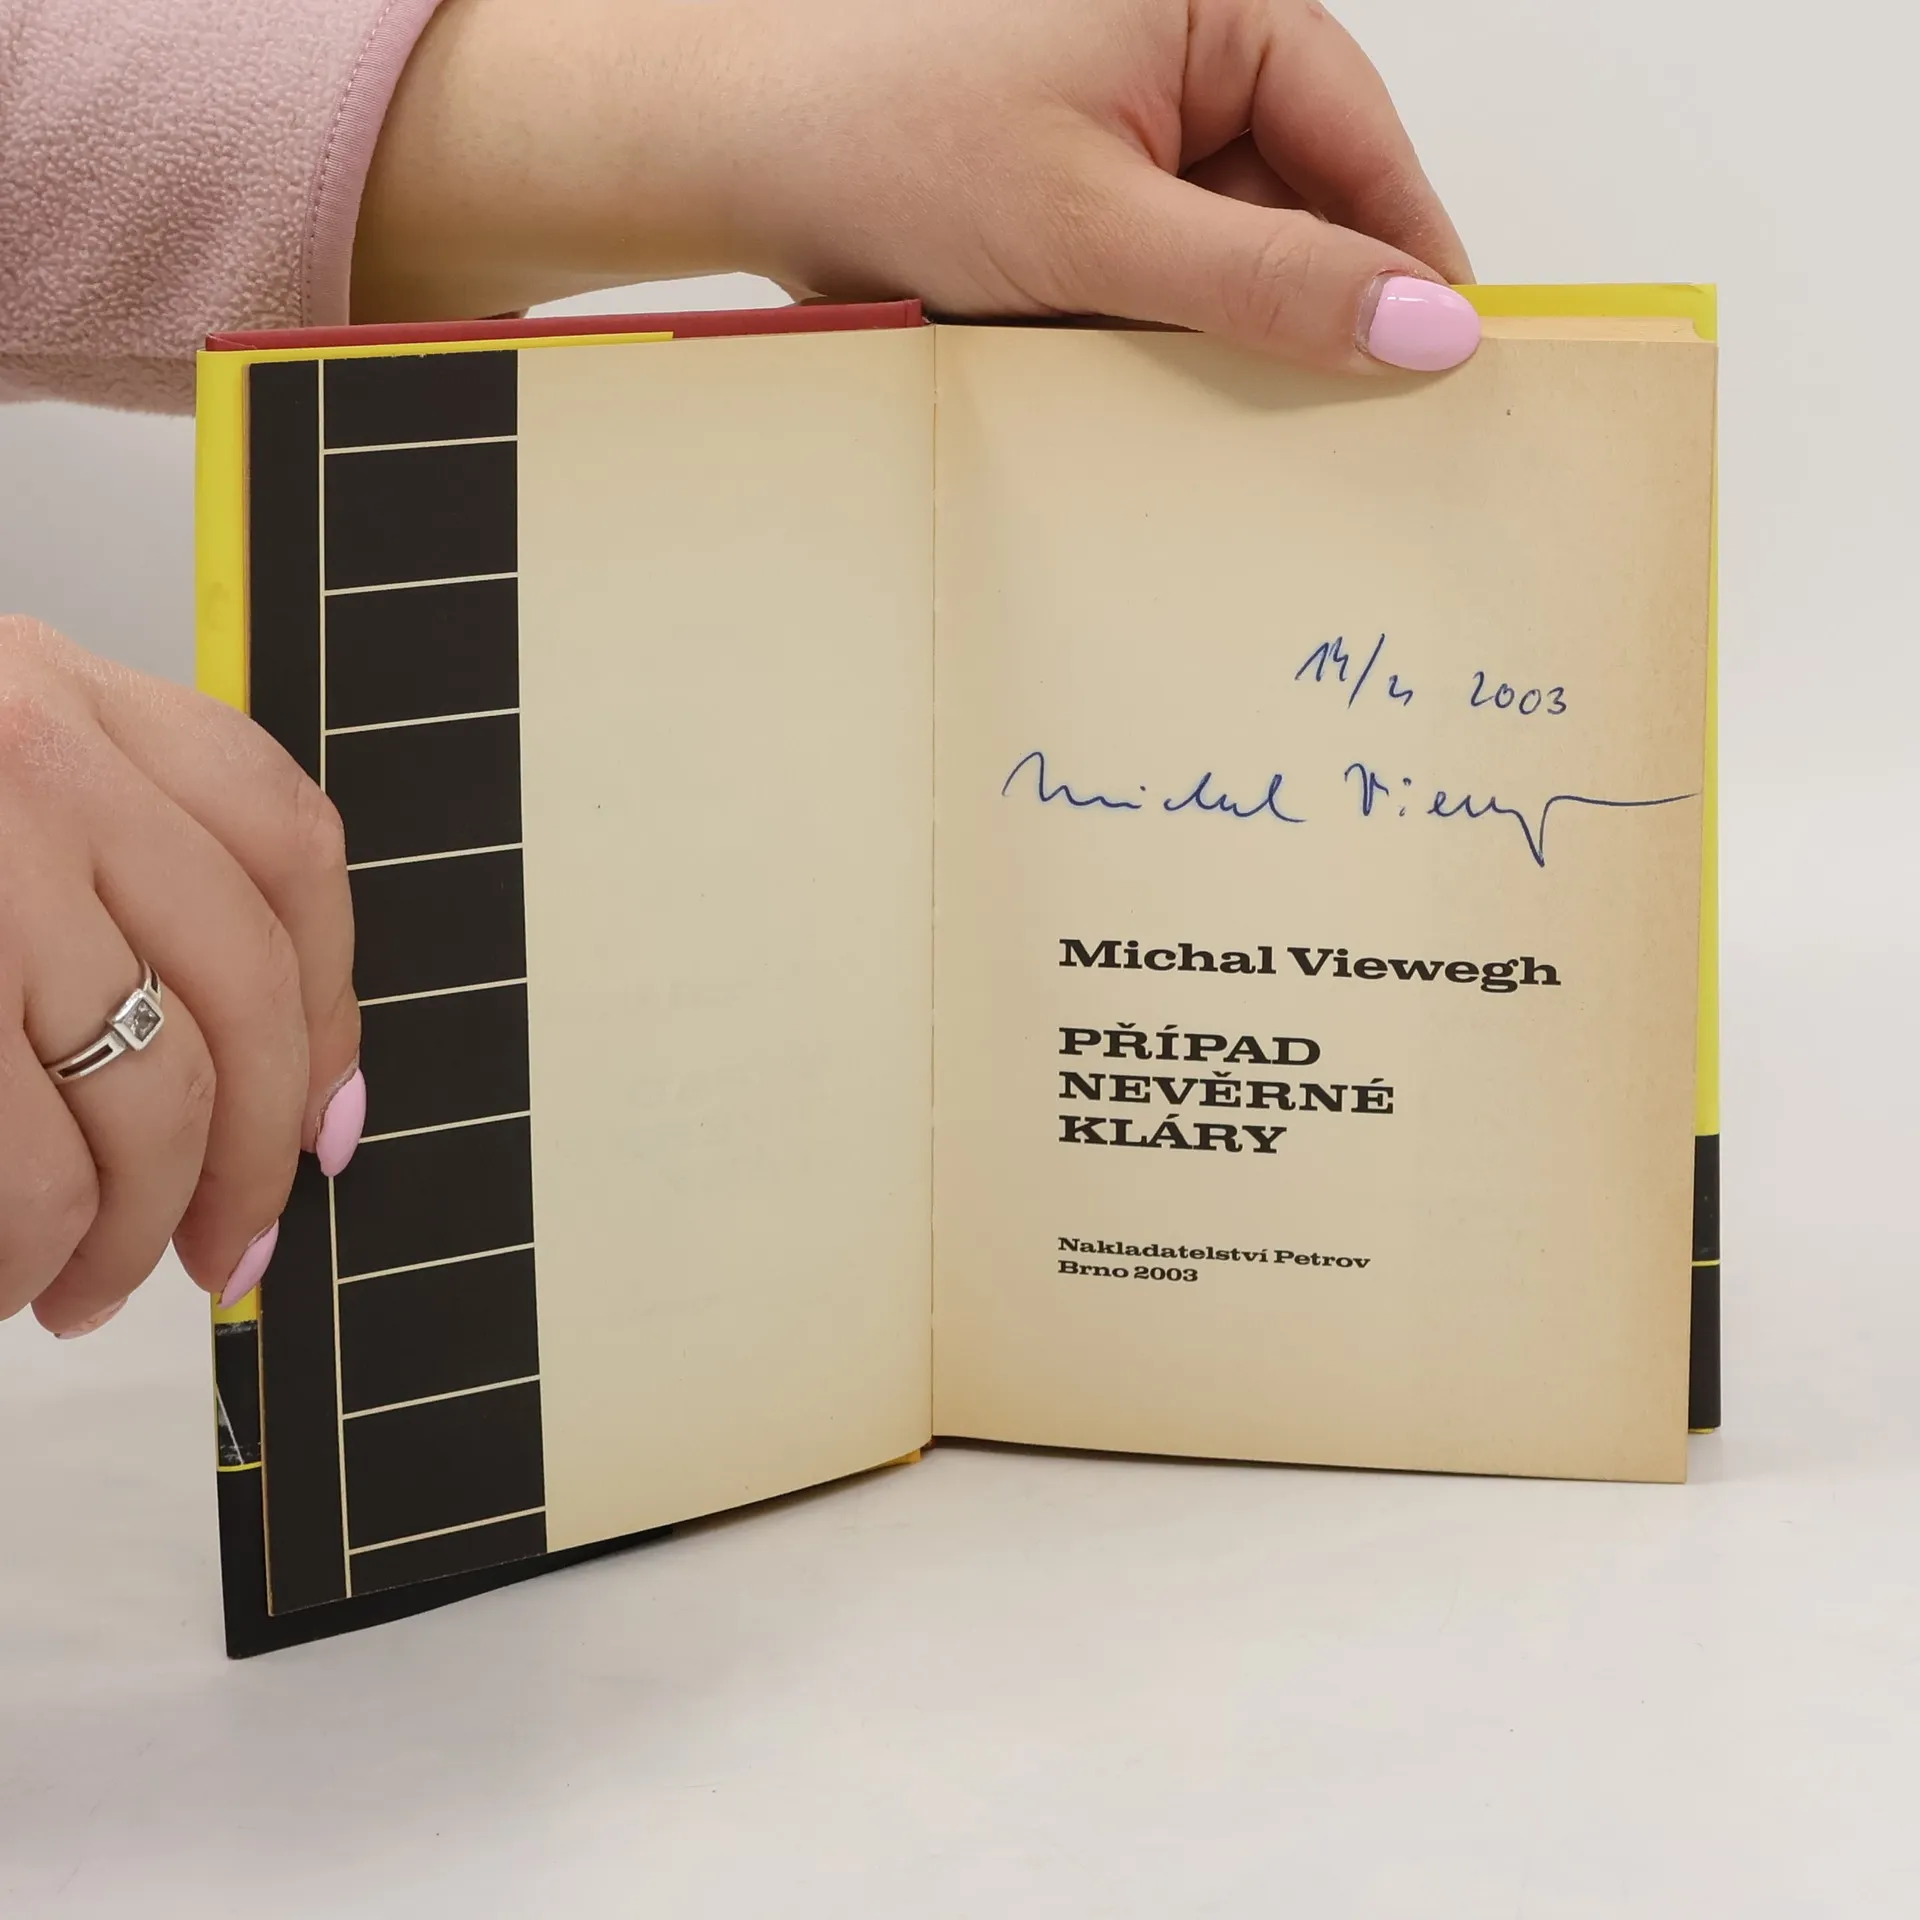 2003
Michal Viewegh
Michal Viewegh
PŘÍPAD
NEVĚRNÉ
KLÁRY
Nakladatelství Petrov
Brno 2003